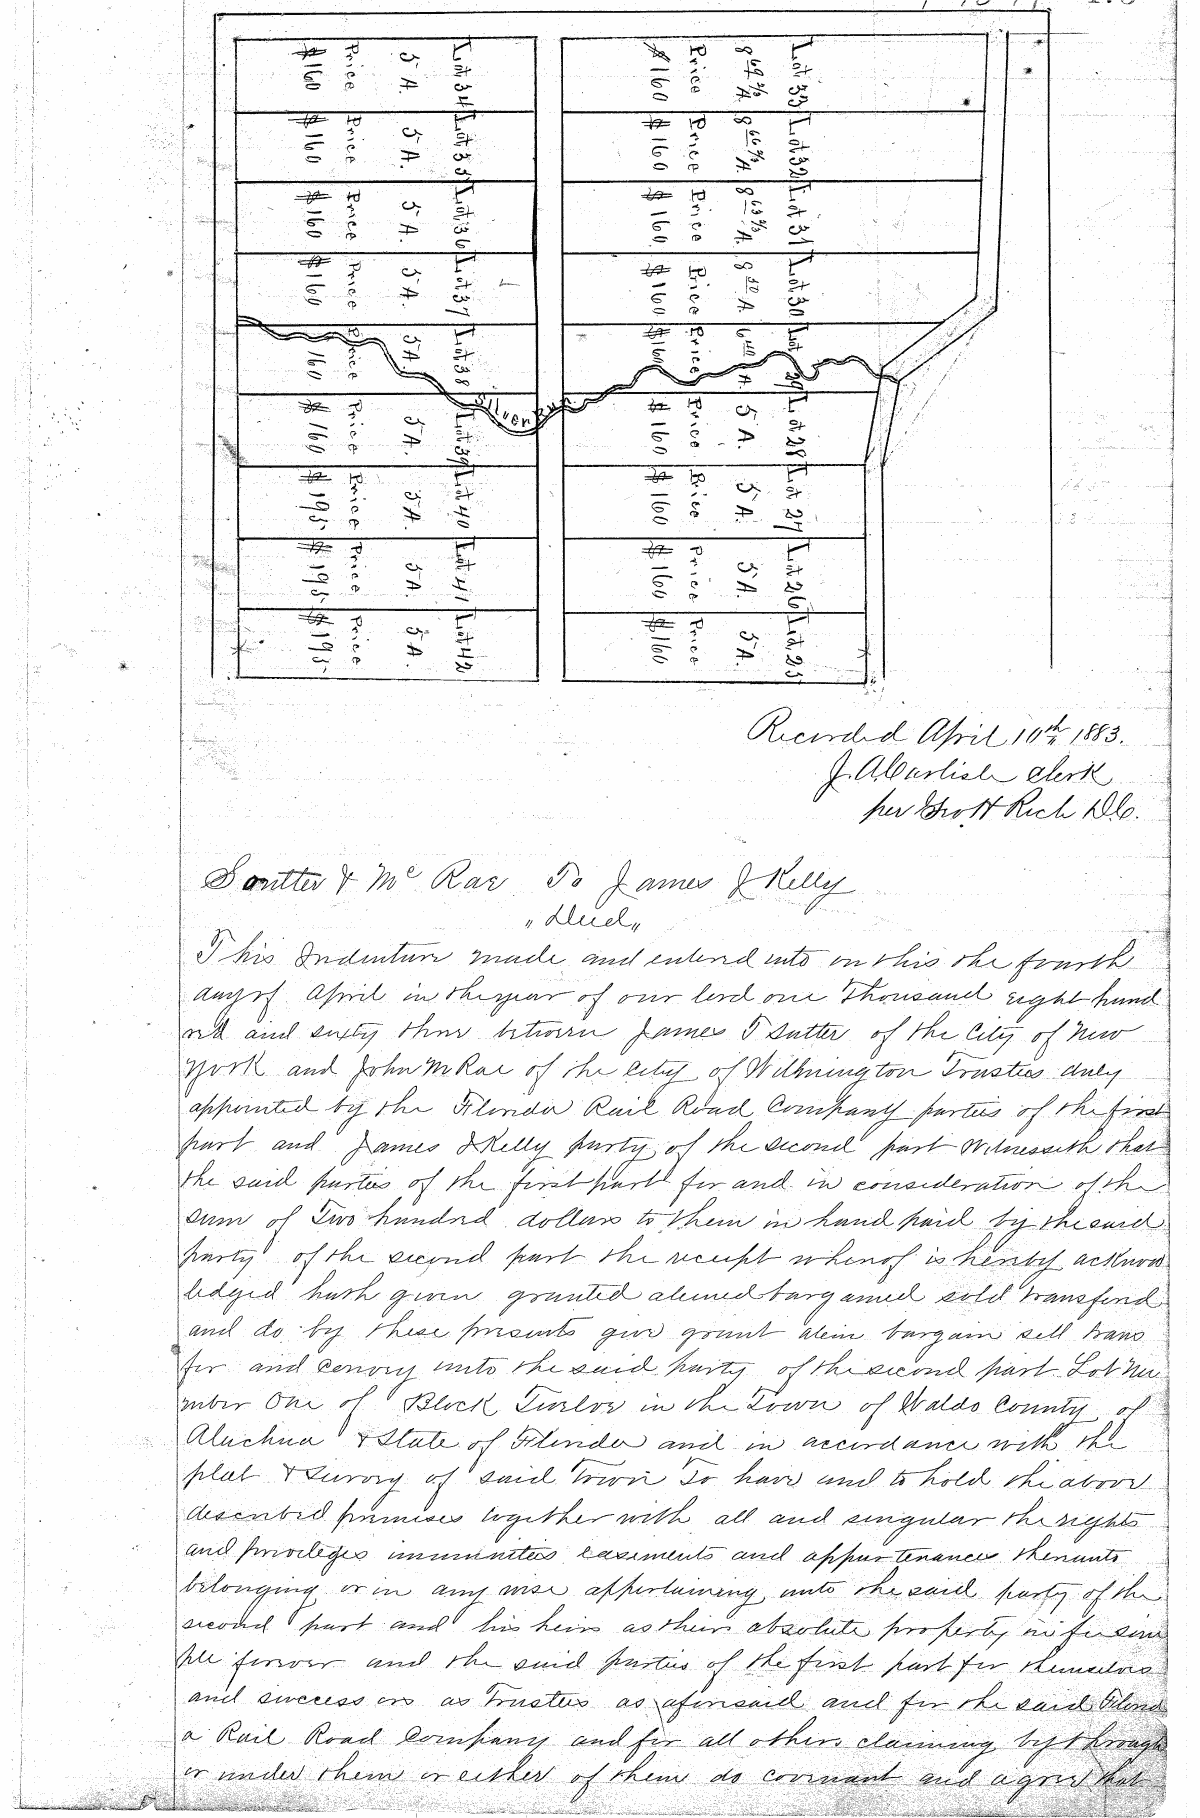 Lot 34
5 A.
Price
$160
Lot 35
5 A.
Price
$160
Lot 36
5 A.
Price
$160
Lot 37
5 A.
Price
$160
Lot 38
5 A
Price
160
Lot 39
5 A.
Price
$160
Lot 40
5 A.
Price
$195
Lot 41
5 A.
Price
$195
Lot 42
5 A.
Price
$195
Lot 33
A
Price
$160
Lot 32
A
Price
$160
Lot 31
A.
Price
$160
Lot 30
A
Price
$160
Lot
A
Price
$16
Lot 28
5 A.
Price
$160
Lot 27
5 A.
Price
$160
Lot 26
5 A.
Price
$160
Lot 25
5 A.
Price
$160
Recorded April 10th 1883.
J. A. Carlisle Clerk
per Geo H Rich D.C.
Soutter & Mc Rae To James J Kelly
"Deed"
This Indenture made and entered into on this the fourth
day of April in the year of our lord one Thousand eight hund
red and sixty three between James T Sutter of the City of New
York and John McRae of the City of Wilmington Trustees duly
appointed by the Florida Rail Road Company parties of the first
part and James J Kelly party of the second part Witnesseth that
the said parties of the first part for and in consideration of the
sum of Two hundred dollars to them in hand paid by the said
party of the second part the receipt whereof is hereby acknow
ledged hath given granted aliened bargained sold transfered
and do by these presents give grant alein bargain sell trans
fer and convey unto the said party of the second part Lot Nu
mber One of Block Twelve in the Town of Waldo County of
Alachua & State of Florida and in accordance with the
plat & Survey of said Town To have and to hold the above
described premises together with all and singular the rights
and privileges immunites easements and appurtenances thereunto
belonging or in any wise appertaining unto the said party of the
second part and his heirs as their absolute property in fee sim
ple forever and the said parties of the first part for themselves
and successors as Trustees as aforesaid and for the said Florid
a Rail Road Company and for all others claiming by through
or under them or either of them do covenant and agree that